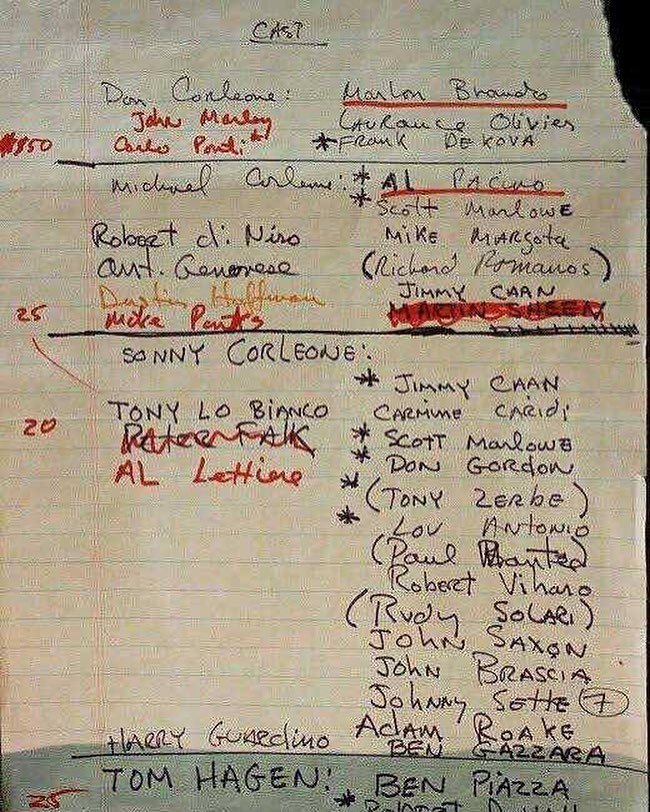 CAST
Don Corleone: Marlon Brando
John Marley Laurance Olivier
$50 Carlo Ponti * FRANK DEKOVA
Michael Corleone: * AL PACINO
* Scott Marlowe
Robert di Niro MIKE MARGOTA
Ant. Genovese (Richard Romanos)
Dustin Hoffman JIMMY CAAN
25 Mike Parks MARTIN SHEEN
SONNY CORLEONE:
* JIMMY CAAN
TONY LO BIANCO CARMINE CARIDI
20 Peter FALK * SCOTT Marlowe
AL Lettiere * DON GORDON
* (TONY ZERBE)
* LOU ANTONIO
(Paul Banteo)
Robert Viharo
(Rudy SOLARI)
JOHN SAXON
JOHN BRASCIA
Johnny Sette 7
Adam ROAKE
HARRY GUARdino BEN GAZZARA
TOM HAGEN: BEN PIAZZA
25 * Robert